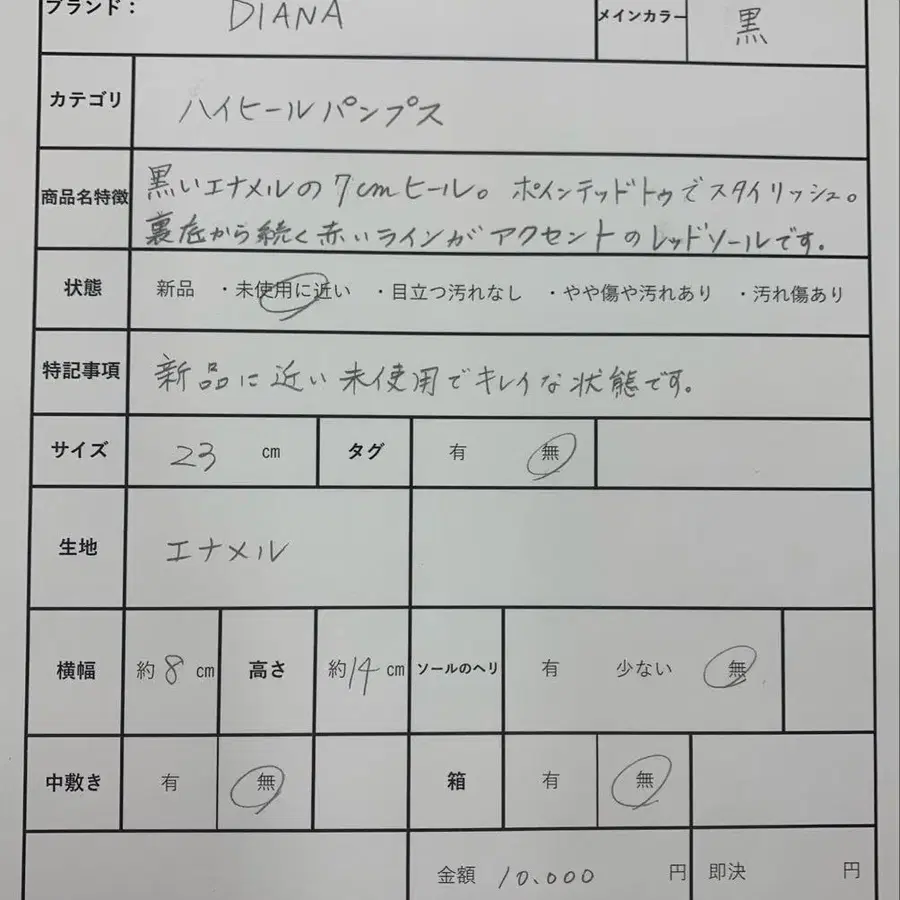 ブランド： DIANA メインカラー 黒
カテゴリ ハイヒールパンプス
商品名特徴 黒いエナメルの7cmヒール。ポインテッドトゥでスタイリッシュ。
裏底から続く赤いラインがアクセントのレッドソールです.
状態 新品 ・未使用に近い ・目立つ汚れなし ・やや傷や汚れあり ・汚れ傷あり
特記事項 新品に近い未使用でキレイな状態です。
サイズ 23 cm タグ 有 無
生地 エナメル
横幅 約8cm 高さ 約14cm ソールのヘリ 有 少ない 無
中敷き 有 無 箱 有 無
金額 10.000 円 即決 円